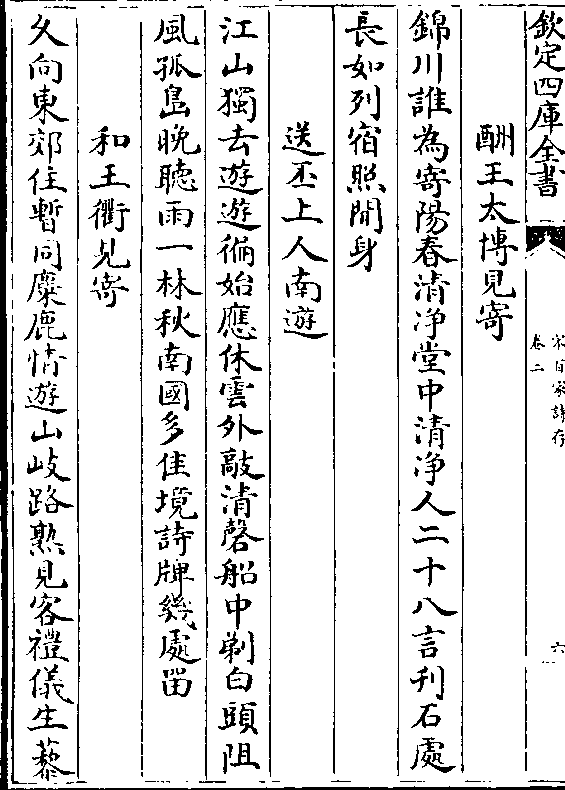 欽定四庫全書
宋百家詩存
卷二
六
酬王太博見寄
錦川誰為寄陽春清淨堂中清淨人二十八言刊石處
長如列宿照閒身
送丕上人南遊
江山獨去遊遊徧始應休雲外敲清磬船中剃白頭阻
風孤島晚聽雨一林秋南國多佳境詩牌幾處留
和王衢見寄
久向東郊住暫同麋鹿情遊山岐路熟見客禮儀生藜